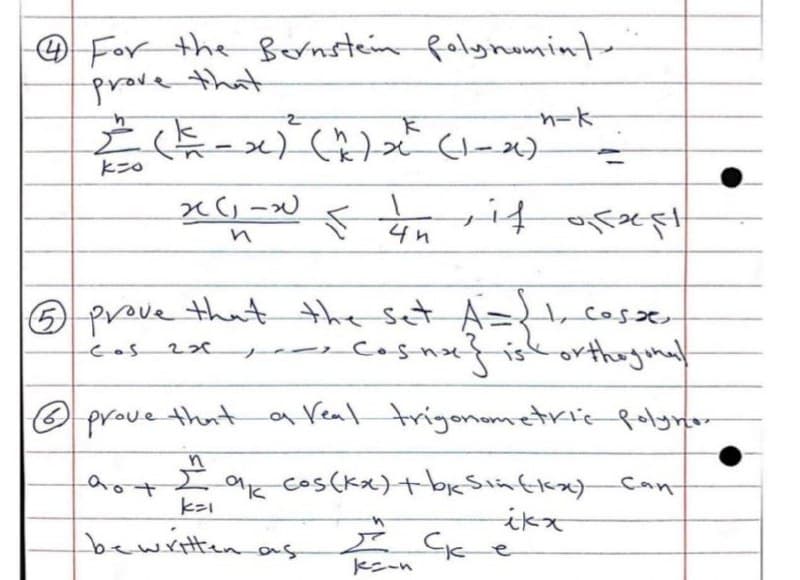 ④ For the Bernstein Polynomial
prove that
n∑k=0 (k/n - x)² (n k) x^k (1-x)^n-k =
x(1-x)/n ≤ 1/4n , if 0≤x≤1
⑤ prove that the set A={1, cosx,
cos 2x , ---, cosnx} is orthogonal
⑥ prove that a real trigonometric Polyno.
a₀ + n∑k=1 aₖ cos(kx) + bₖ sin(kx) can
be written as n∑k=-n Cₖ e^ikx